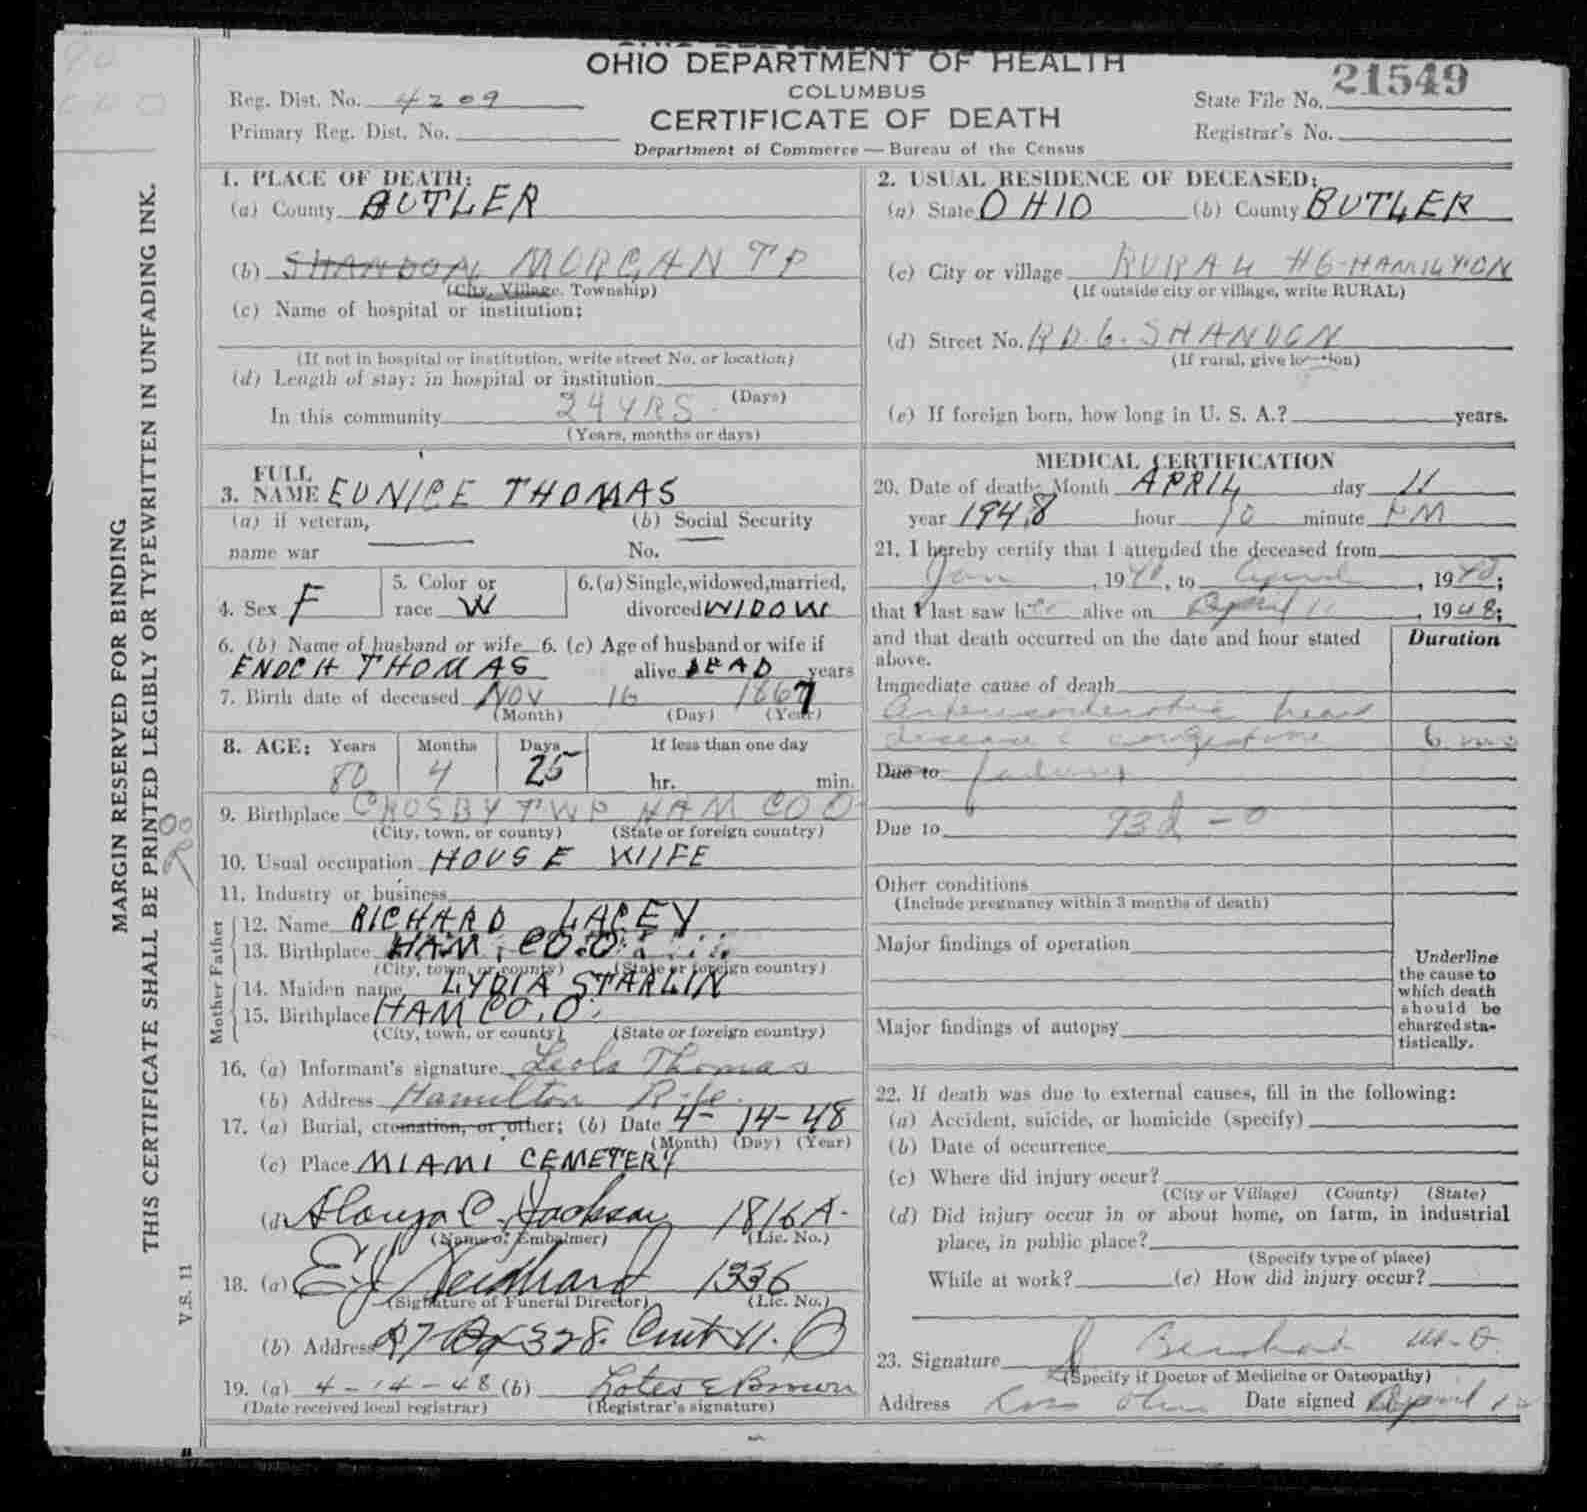 OHIO DEPARTMENT OF HEALTH
COLUMBUS
CERTIFICATE OF DEATH
Department of Commerce — Bureau of the Census
Reg. Dist. No. 4209
Primary Reg. Dist. No.
State File No. 21549
Registrar's No.
MARGIN RESERVED FOR BINDING
THIS CERTIFICATE SHALL BE PRINTED LEGIBLY OR TYPEWRITTEN IN UNFADING INK.
V.S. 11
1. PLACE OF DEATH:
(a) County BUTLER
(b) SHANDON MORGAN TP
(City, Village, Township)
(c) Name of hospital or institution:
(If not in hospital or institution, write street No. or location)
(d) Length of stay: in hospital or institution
(Days)
In this community 24 YRS
(Years, months or days)
2. USUAL RESIDENCE OF DECEASED:
(a) State OHIO (b) County BUTLER
(c) City or village RURAL #6-HAMILTON
(If outside city or village, write RURAL)
(d) Street No. RD. 6. SHANDON
(If rural, give location)
(e) If foreign born, how long in U. S. A.? years.
3. FULL NAME EUNICE THOMAS
(a) if veteran, name war
(b) Social Security No.
4. Sex F
5. Color or race W
6. (a) Single, widowed, married, divorced WIDOW
6. (b) Name of husband or wife ENOCH THOMAS
6. (c) Age of husband or wife if alive DEAD years
7. Birth date of deceased NOV 16 1867
(Month) (Day) (Year)
8. AGE: Years Months Days If less than one day
80 4 25 hr. min.
9. Birthplace CROSBY TWP HAM CO O
(City, town, or county) (State or foreign country)
10. Usual occupation HOUSE WIFE
11. Industry or business
Father
12. Name RICHARD LACEY
13. Birthplace HAM. CO. O.
(City, town, or county) (State or foreign country)
Mother
14. Maiden name LYDIA STARLIN
15. Birthplace HAM CO. O.
(City, town, or county) (State or foreign country)
16. (a) Informant's signature Leola Thomas
(b) Address Hamilton R-6
17. (a) Burial, cremation, or other; (b) Date 4-14-48
(Month) (Day) (Year)
(c) Place MIAMI CEMETERY
(d) Alonzo C. Jackson 1816A-
(Name of Embalmer) (Lic. No.)
18. (a) 1336
(Signature of Funeral Director) (Lic. No.)
(b) Address R7 Bx 328. Cint 11. O
19. (a) 4-14-48 (b) Brown
(Date received local registrar) (Registrar's signature)
MEDICAL CERTIFICATION
20. Date of death: Month APRIL day 11
year 1948 hour 10 minute PM
21. I hereby certify that I attended the deceased from
Jan, 1948, to April, 1948;
that I last saw her alive on April 11, 1948;
and that death occurred on the date and hour stated above.
Duration
Immediate cause of death
Arteriosclerotic heart
disease c congestive 6 mos
Due to failure
Due to 93d-0
Other conditions
(Include pregnancy within 3 months of death)
Major findings of operation
Major findings of autopsy
Underline the cause to which death should be charged statistically.
22. If death was due to external causes, fill in the following:
(a) Accident, suicide, or homicide (specify)
(b) Date of occurrence
(c) Where did injury occur?
(City or Village) (County) (State)
(d) Did injury occur in or about home, on farm, in industrial
place, in public place?
(Specify type of place)
While at work? (e) How did injury occur?
23. Signature M.D.
(Specify if Doctor of Medicine or Osteopathy)
Address Ross Ohio Date signed April